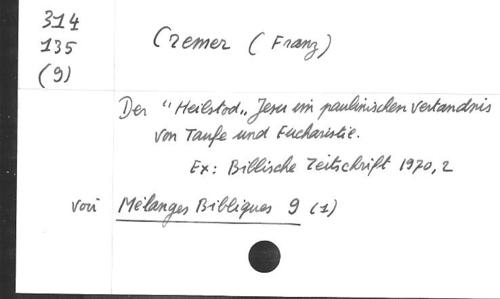 314
135
(9)
Cremer (Franz)
Der "Heilstod" Jesu im paulinischen Vertandnis
von Taufe und Eucharistie.
Ex: Biblische Zeitschrift 1970, 2
voir Mélanges Bibliques 9 (1)